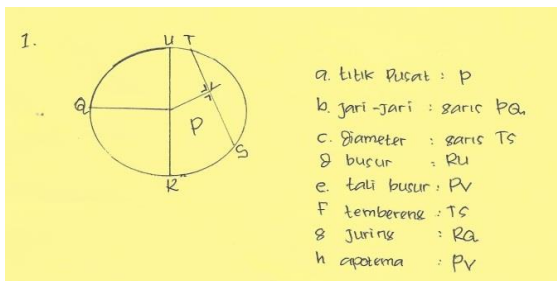 1.
U T
Q
P
S
R
a. titik Pusat : P
b. jari-jari : garis PQ
c. diameter : garis TS
d busur : RU
e. tali busur : PV
F tembereng : TS
g Juring : RQ
h apotema : PV